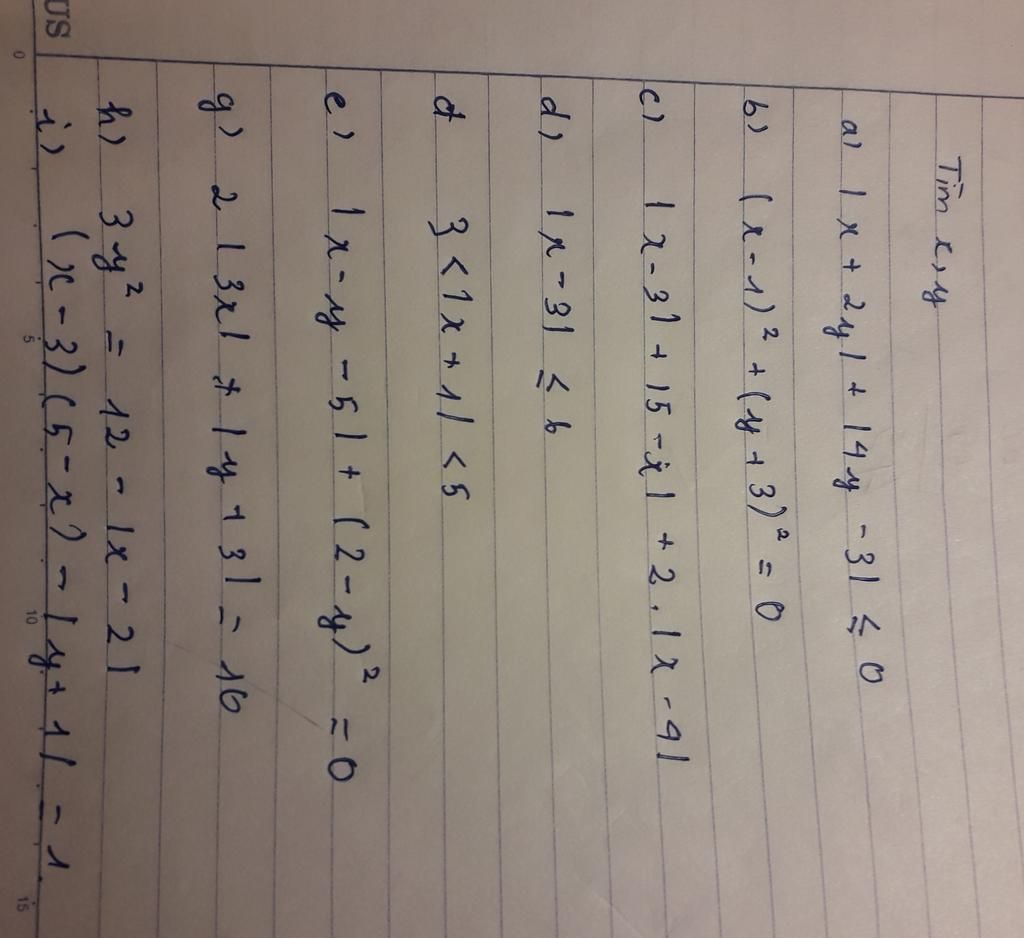 Tìm x, y
a) |x + 2y| + |4y - 3| ≤ 0
b) (x - 1)² + (y + 3)² = 0
c) |x - 3| + |5 - x| + 2.|x - 4|
d) |x - 3| ≤ 6
đ 3 < |x + 1| < 5
e) |x - y - 5| + (2 - y)² = 0
g) 2|3x| + |y + 3| = 10
h) 3y² = 12 - |x - 2|
i) (x - 3)(5 - x) - |y + 1| = 1
US
0 5 10 15